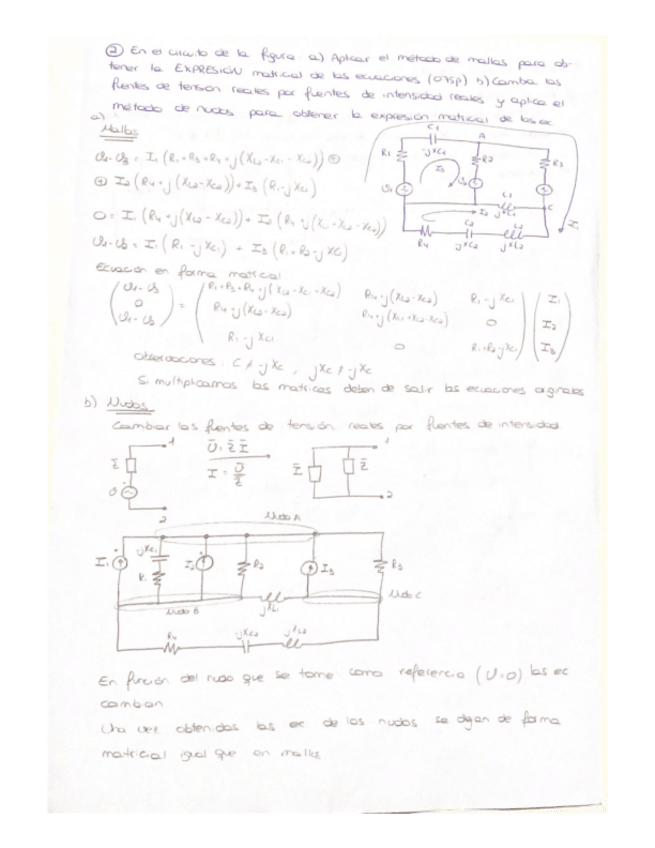 ② En el circuito de la figura a) Aplicar el método de mallas para ob-
tener la EXPRESIÓN matricial de las ecuaciones (0.75p) b) Cambia las
fuentes de tensión reales por fuentes de intensidad reales y aplica el
método de nudos para obtener la expresión matricial de las ec
a)
Mallas
C1
A
R1
-jXc1
R2
R3
I3
L1
jXL1
C
I2
R4
C2
jXc2
L2
jXL2
I1
0 = I1 (R4 + j(XL2 - XC2)) + I2 (R4 + j(XL1 + XL2 - XC2))
U1 - U2 = I1 (R1 - jXc1) + I3 (R1 + R2 - jXc)
Ecuación en forma matricial
R1 + R3 + R4 + j(XL2 - XC1 - XC2)
R4 + j(XL2 - XC2)
R1 - jXc1
I1
0
R4 + j(XL2 - XC2)
R4 + j(XL1 + XL2 - XC2)
0
I2
R1 - jXc1
0
R1 + R2 - jXc1
I3
Observaciones: C ≠ -jXc , jXc ≠ -jXc
Si multiplicamos las matrices deben de salir las ecuaciones originales
b) Nudos
Cambiar las fuentes de tensión reales por fuentes de intensidad
1
Z
U
2
U = Z I
I = U/Z
I
Z
1
2
Nudo A
I1
jXc1
R1
I2
R2
I3
R3
Nudo B
jXL1
Nudo C
R4
-jXc2
jXL2
En función del nudo que se tome como referencia (U=0) las ec
cambian
Una vez obtenidas las ec de los nudos se dejan de forma
matricial igual que en mallas